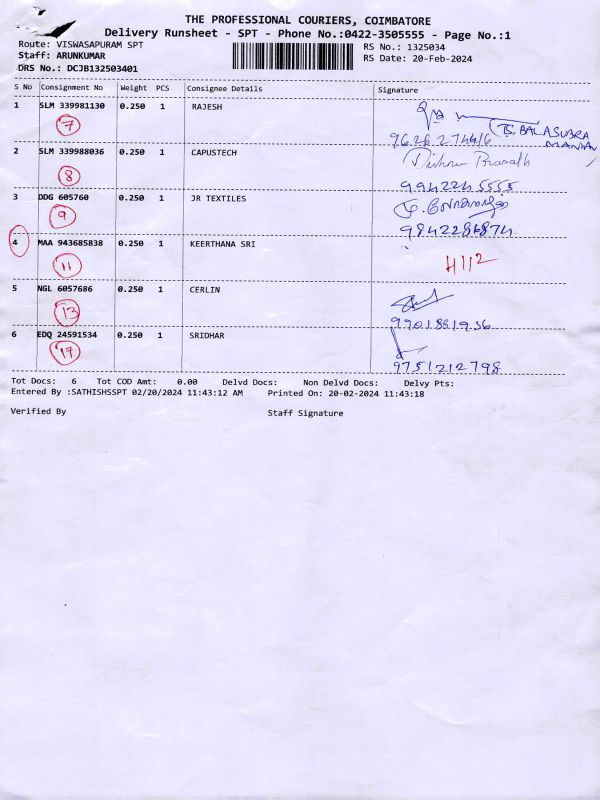 THE PROFESSIONAL COURIERS, COIMBATORE
Delivery Runsheet - SPT - Phone No.:0422-3505555 - Page No.:1
Route: VISWASAPURAM SPT RS No.: 1325034
Staff: ARUNKUMAR RS Date: 20-Feb-2024
DRS No.: DCJB132503401
S No Consignment No Weight PCS Consignee Details Signature
1 SLM 339981130 0.250 1 RAJESH
7 9626274416 (TS. BALASUBRA
MANIAN
2 SLM 339988036 0.250 1 CAPUSTECH Vishnu Prasath
8 9942245555
3 DDG 605760 0.250 1 JR TEXTILES
9 9842284874
4 MAA 943685838 0.250 1 KEERTHANA SRI
11 H112
5 NGL 6057686 0.250 1 CERLIN
13 9901881936
6 EDQ 24591534 0.250 1 SRIDHAR
17 9751212798
Tot Docs: 6 Tot COD Amt: 0.00 Delvd Docs: Non Delvd Docs: Delvy Pts:
Entered By :SATHISHSSPT 02/20/2024 11:43:12 AM Printed On: 20-02-2024 11:43:18
Verified By Staff Signature